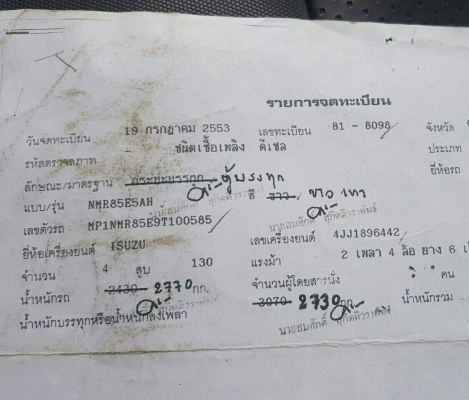 รายการจดทะเบียน
วันจดทะเบียน 19 กรกฎาคม 2553 เลขทะเบียน 81 - 8098 จังหวัด
รหัสตรวจสภาพ - ชนิดเชื้อเพลิง ดีเซล ประเภท
ลักษณะ/มาตรฐาน กระบะบรรทุก ตู้บรรทุก สี ขาว ขาว เทา ยี่ห้อรถ
แบบ/รุ่น NMR85E5AH นายสมศักดิ์ สุกิตติวราพันธ์
เลขตัวรถ MP1NMR85E9T100585 นายสมศักดิ์ สุกิตติวราพันธ์
ยี่ห้อเครื่องยนต์ ISUZU เลขเครื่องยนต์ 4JJ1896442
จำนวน 4 สูบ 130 แรงม้า 2 เพลา 4 ล้อ ยาง 6
น้ำหนักรถ 2430 2770 กก. จำนวนผู้โดยสารนั่ง คน
น้ำหนักบรรทุกหรือน้ำหนักลงเพลา 3070 2730 กก. น้ำหนักรวม
นายสมศักดิ์ สุกิตติวราพันธ์